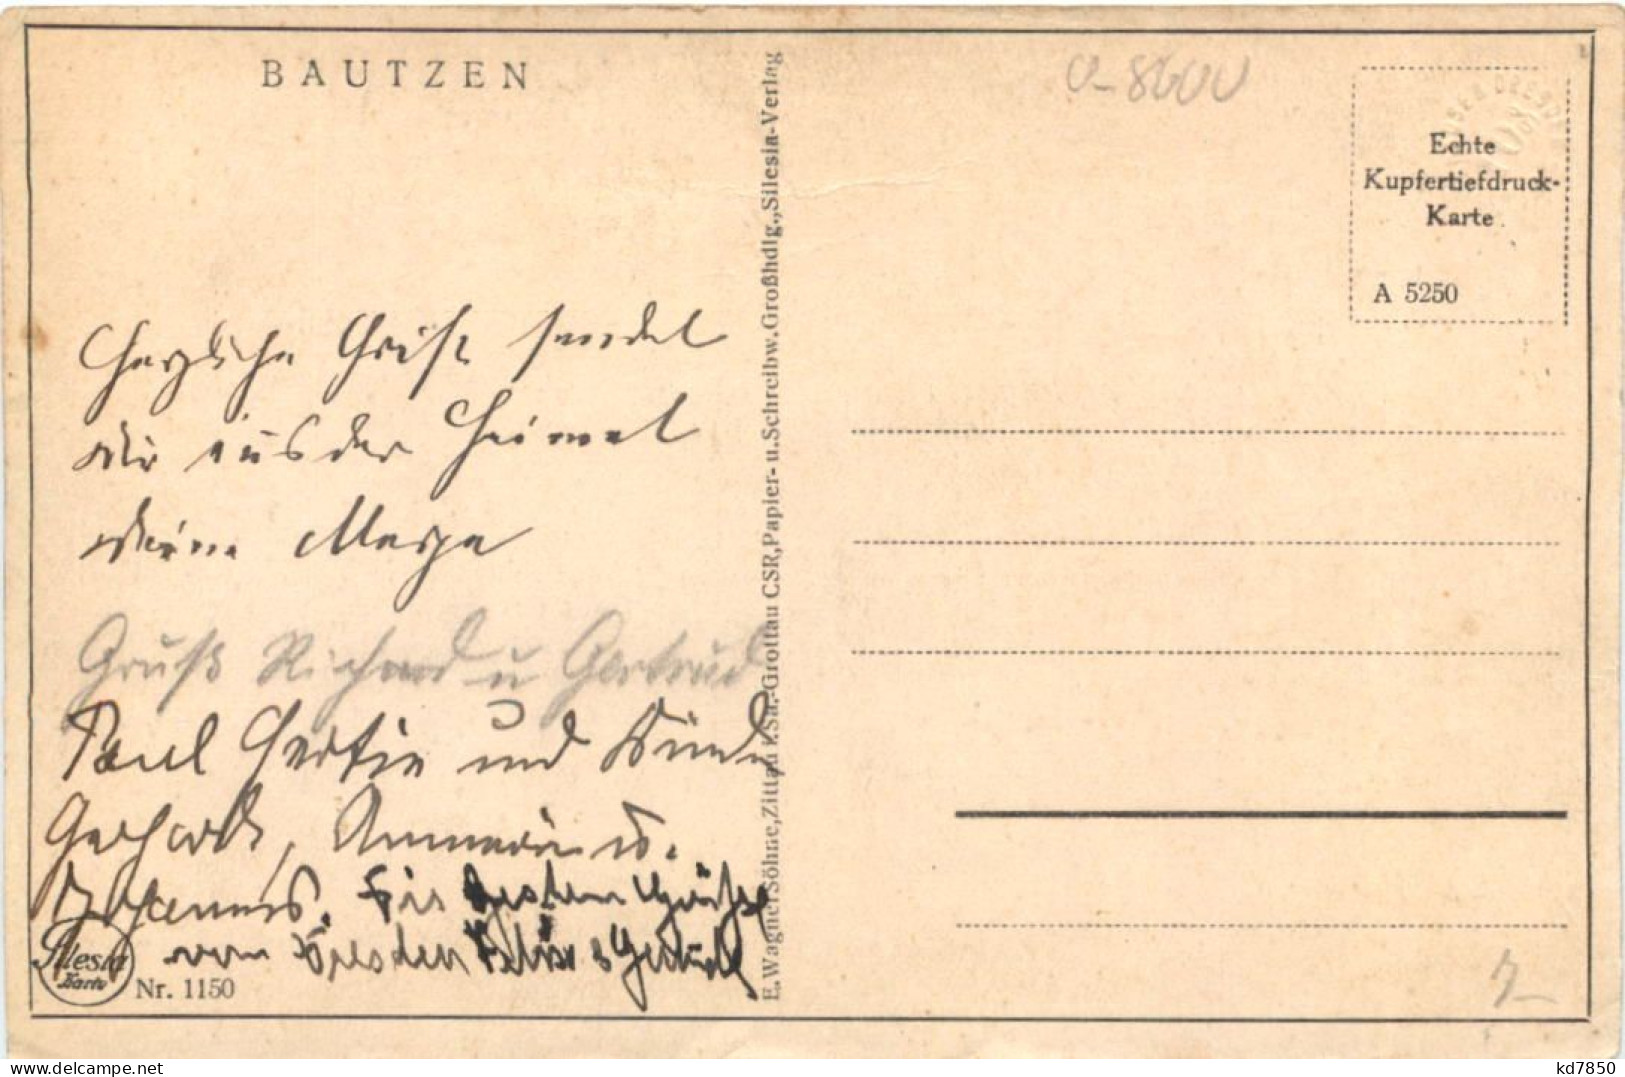 BAUTZEN
0-8600
Echte
Kupfertiefdruck-
Karte
A 5250
Herzliche Grüße sendet
Dir aus der Heimat
Deine
Gruß Richard u Gertrud
Paul und
Gerhard, u.
Johannes. Die besten Grüße
von
Silesia
Karte
Nr. 1150
E. Wagner Söhne, Zittau i. Sa.-Grottau CSR, Papier- u. Schreibw. Großhdlg., Silesia-Verlag
delcampe.net
kd7850